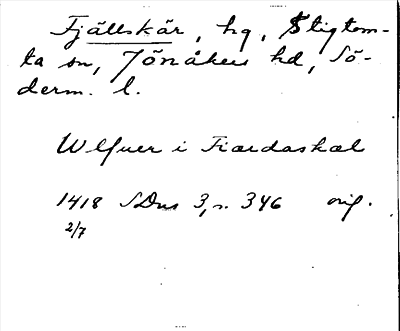 Fjällskär, hg, Stigtom-
ta sn, Jönåkers hd, Sö-
derm. l.
Ulfuer i Fiærdaskæl
1418 SDns 3, s. 346 orig.
2/7